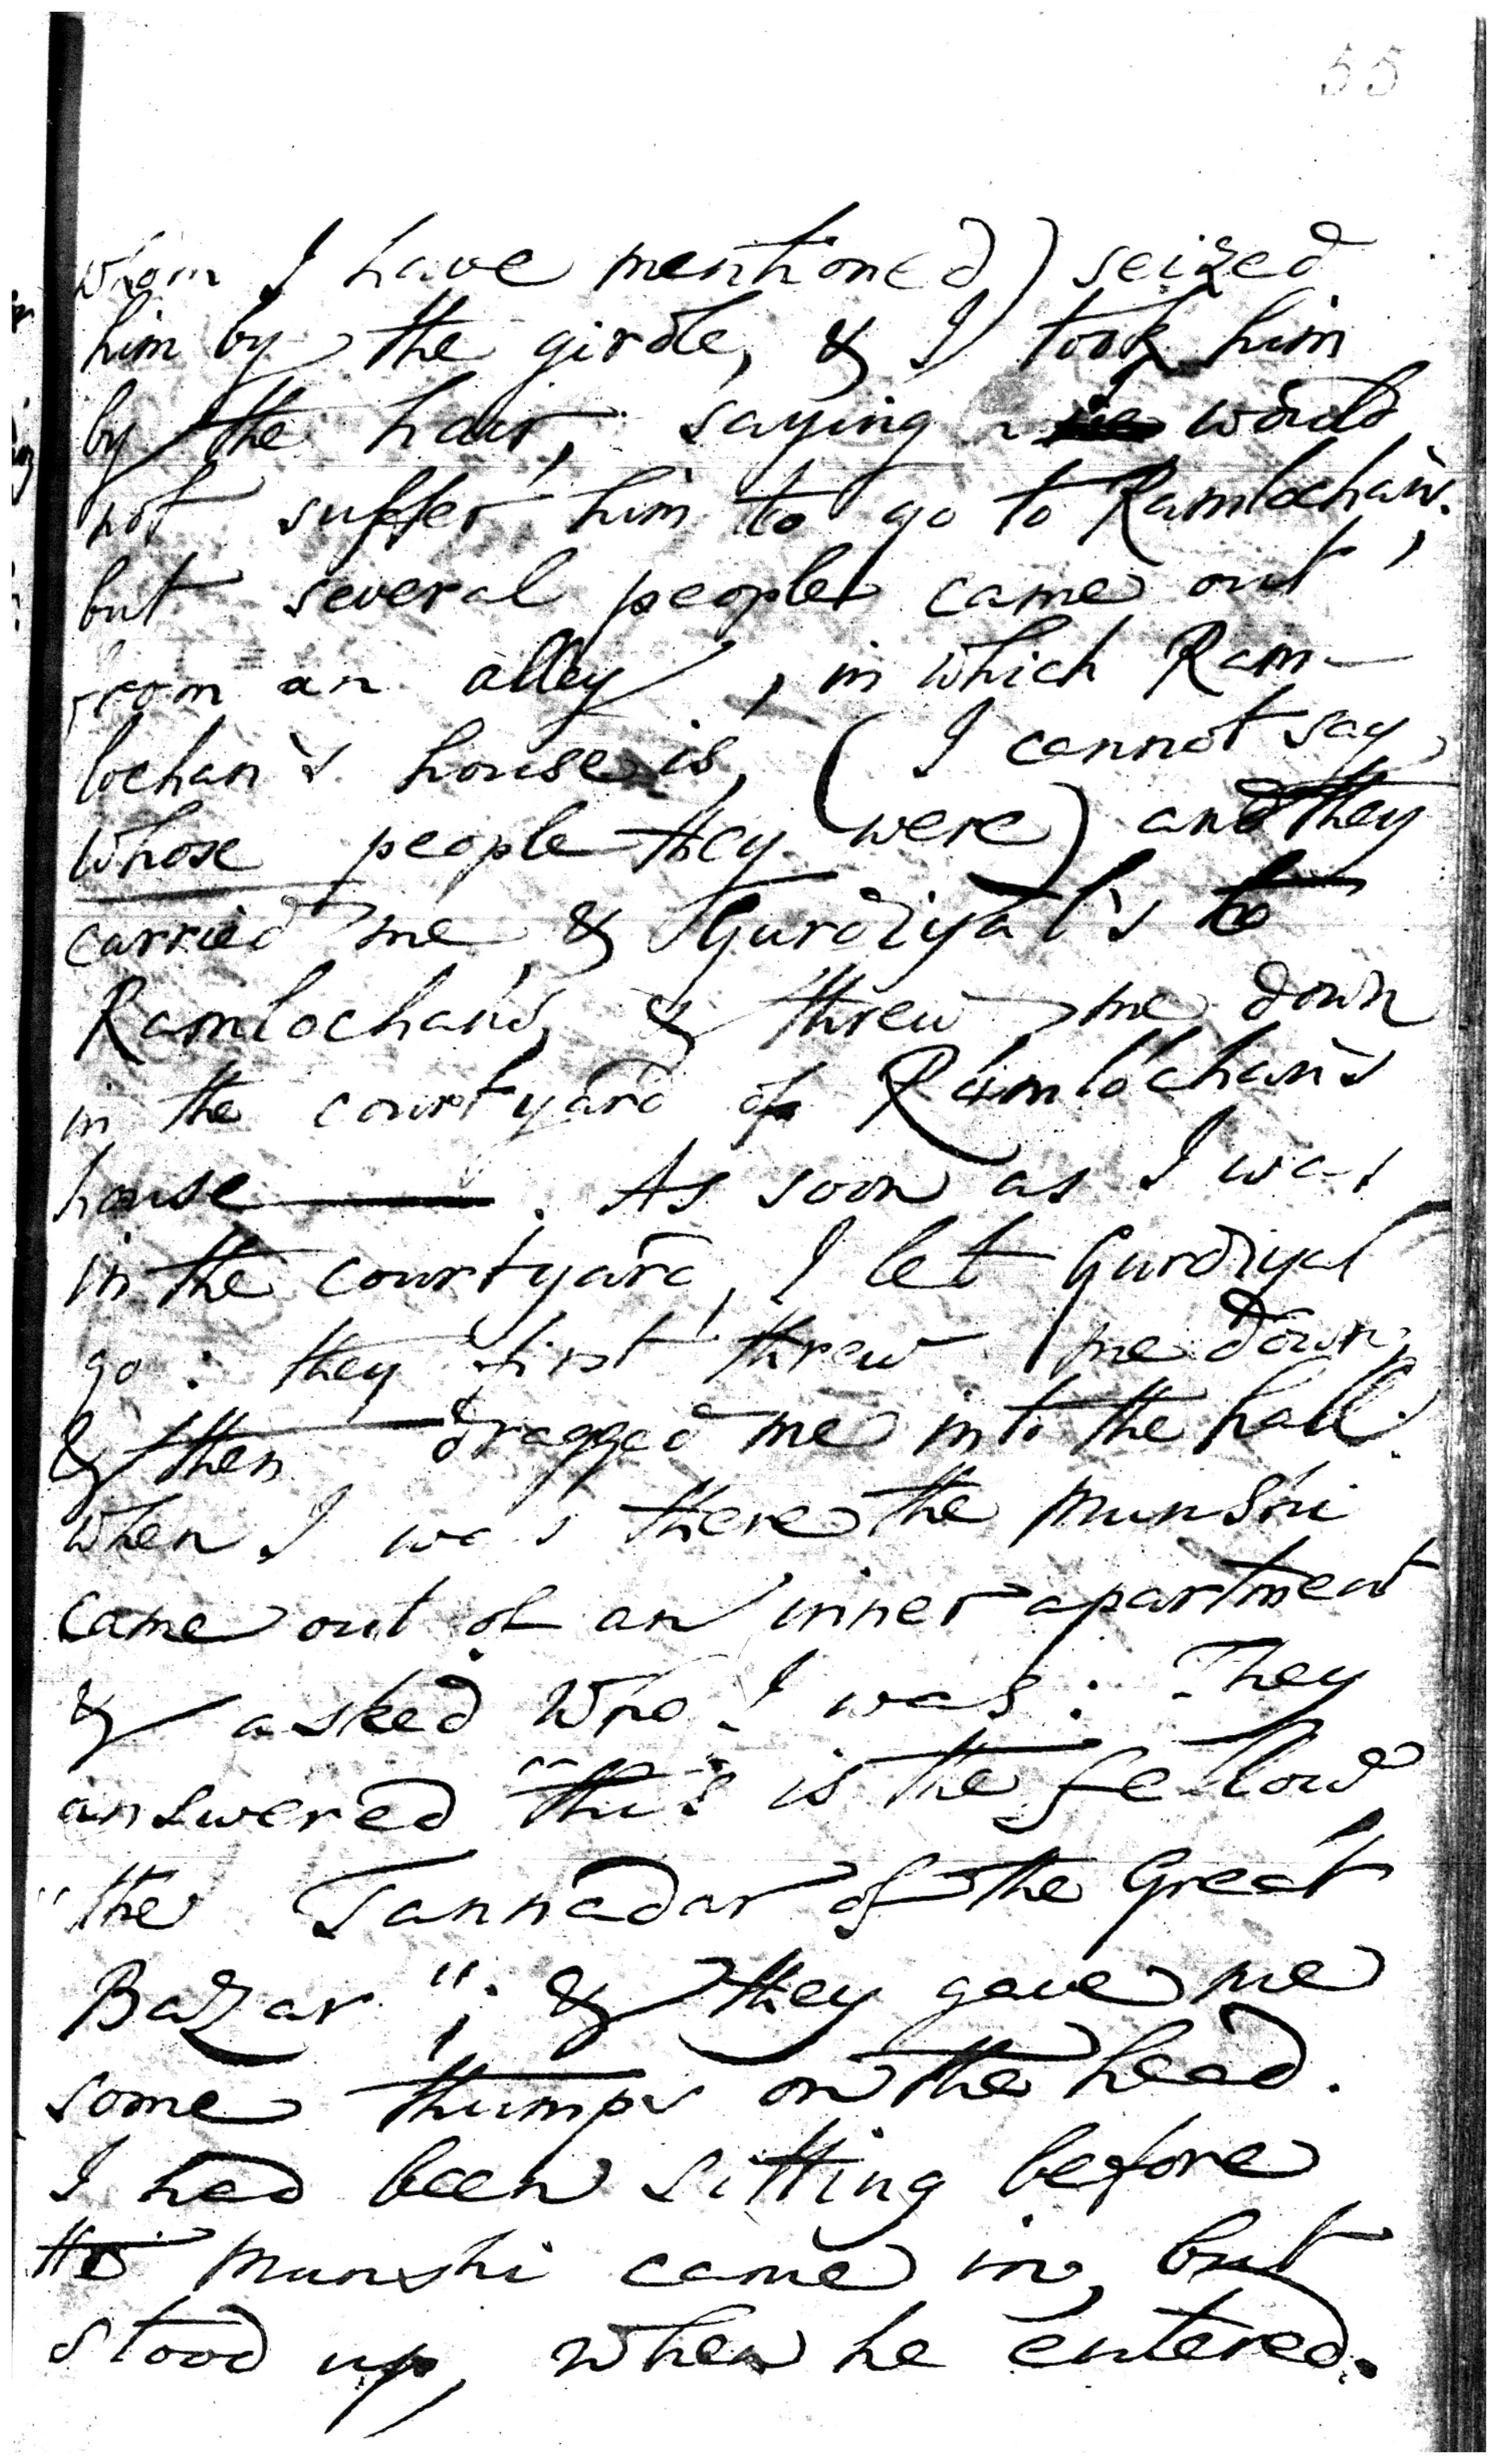 55
whom I have mentioned) seized
him by the girdle, & I took him
by the hair, saying would
not suffer him to go to Ramlochan's.
but several people came out,
from an alley, in which Ram-
lochan's house is, (I cannot say
whose people they were) and they
carried me & Gurdiyal's to
Ramlochan's, & threw me down
in the courtyard of Ramlochan's
house. As soon as I was
in the courtyard, I let Gurdiyal
go: they first threw me down,
& then dragged me into the hall.
When I was there the Munshi
came out of an inner apartment
& asked who I was: They
answered "this is the fellow
"the Tannadar of the Great
Bazar"; & they gave me
some thumps on the head.
I had been sitting before
the Munshi came in, but
stood up, when he entered.